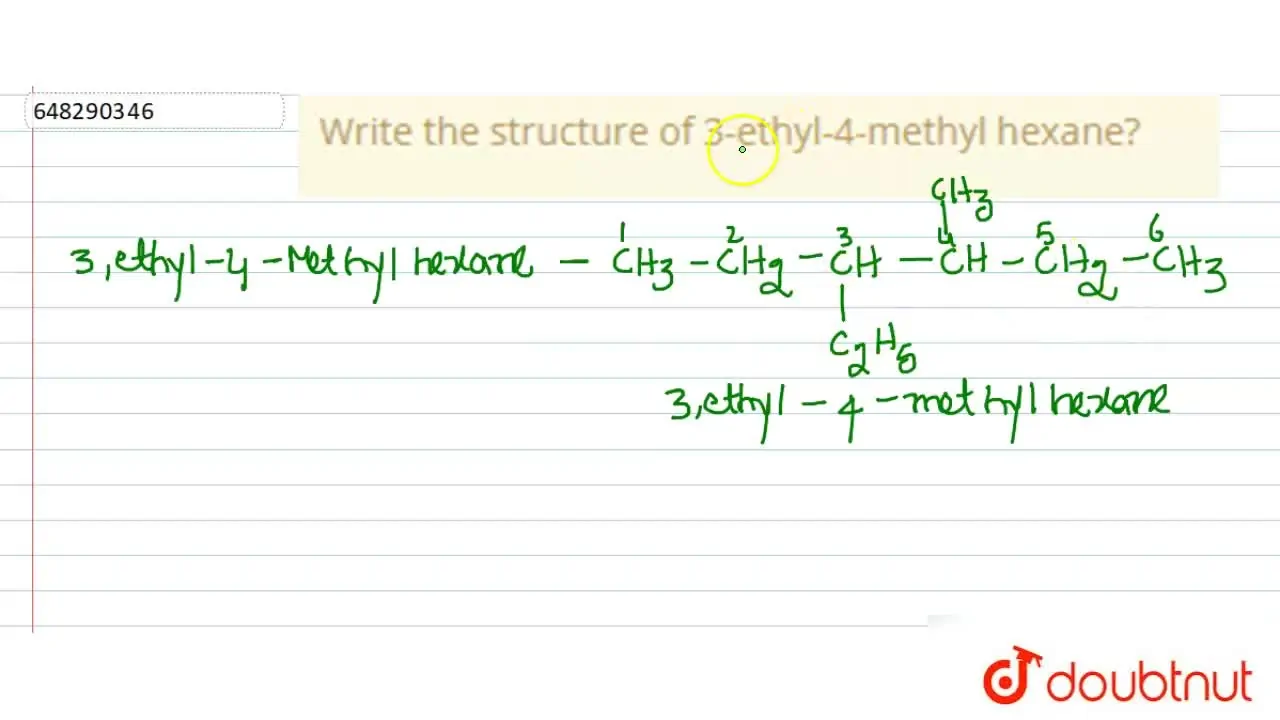 648290346
Write the structure of 3-ethyl-4-methyl hexane?
CH3
1 2 3 4 5 6
3,ethyl-4-Methyl hexane - CH3 - CH2 - CH - CH - CH2 - CH3
C2H5
3,ethyl - 4 - methyl hexane
doubtnut